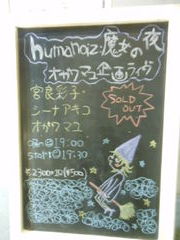 humanoiz 魔女の夜
オガワマユ企画ライヴ
宮良彩子
シーナアキコ
オガワマユ
SOLD OUT
open@19:00
start@19:30
¥2300+1D¥500